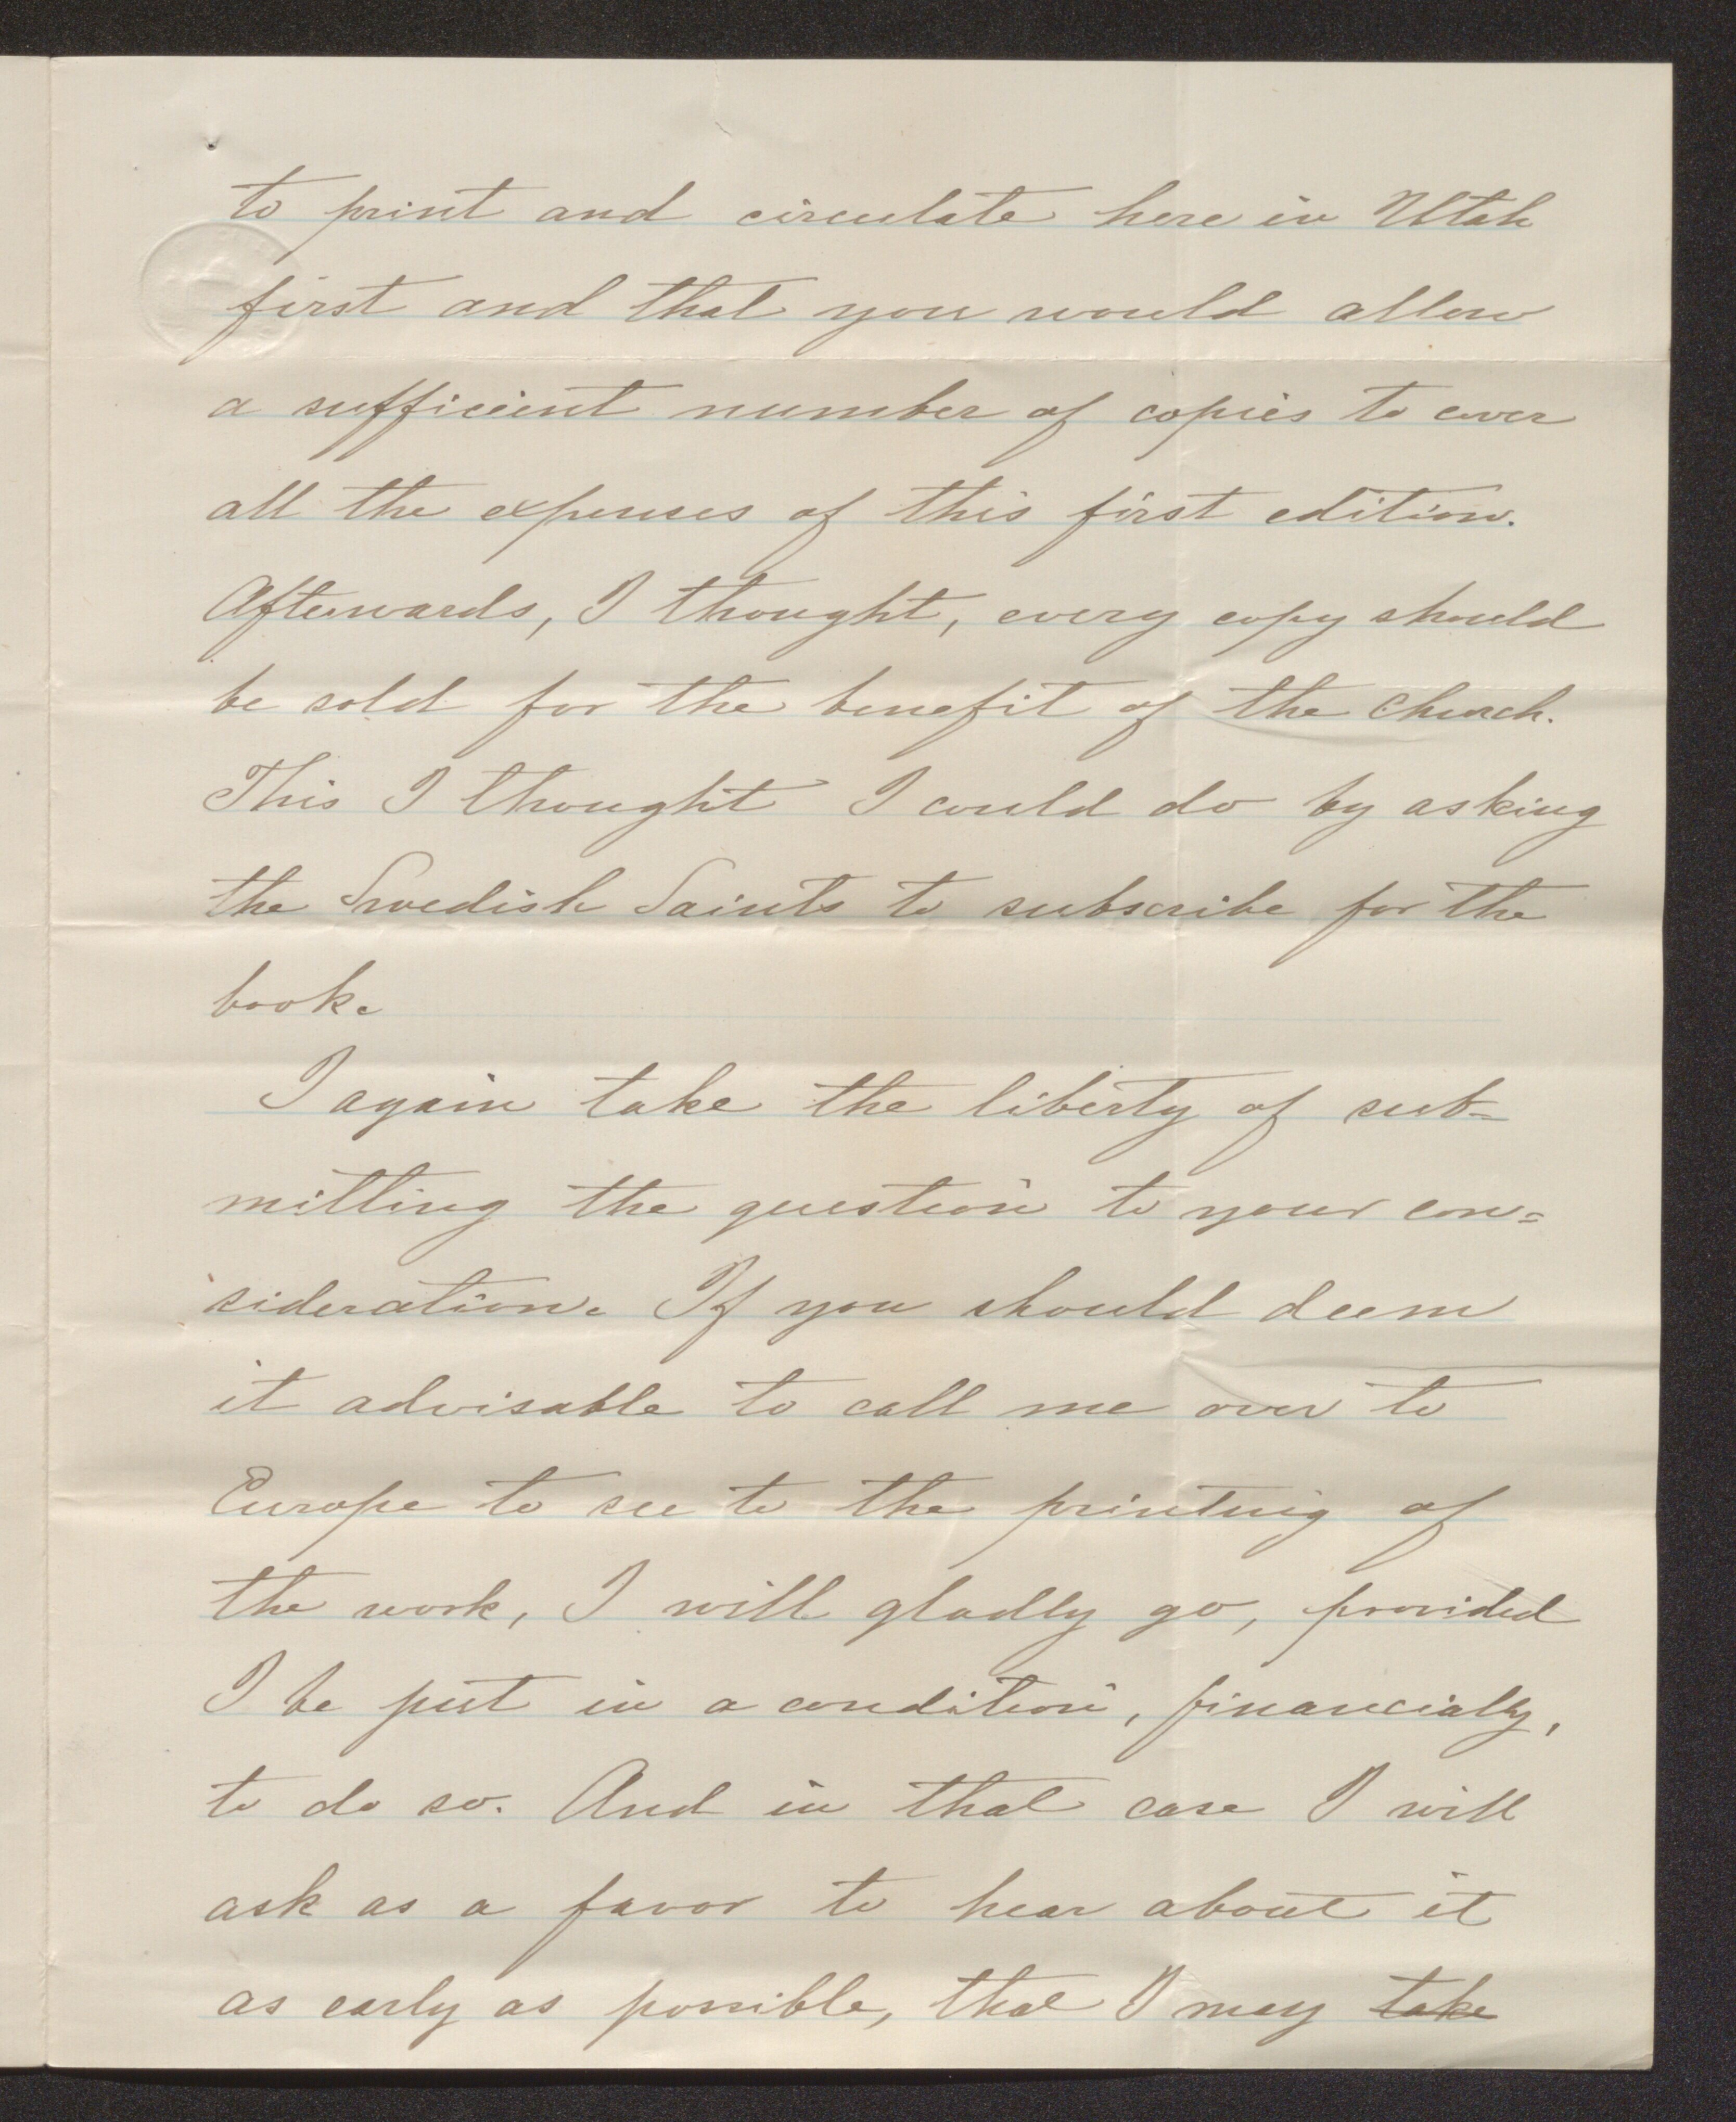 to print and circulate here in Utah
first and that you would allow
a sufficient number of copies to cover
all the expenses of this first edition.
Afterwards, I thought, every copy should
be sold for the benefit of the Church.
This I thought I could do by asking
the Swedish Saints to subscribe for the
book.
I again take the liberty of sub=
mitting the question to your con=
sideration. If you should deem
it advisable to call me over to
Europe to see to the printing of
the work, I will gladly go, provided
I be put in a condition, financially,
to do so. And in that case I will
ask as a favor to hear about it
as early as possible, that I may take